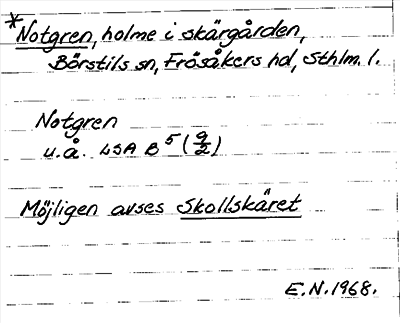 *Notgren, holme i skärgården,
Börstils sn, Frösåkers hd, Sthlm. l.
Notgren
u.å. LSA B 5 (9/2)
Möjligen avses Skollskäret
E.N. 1968.